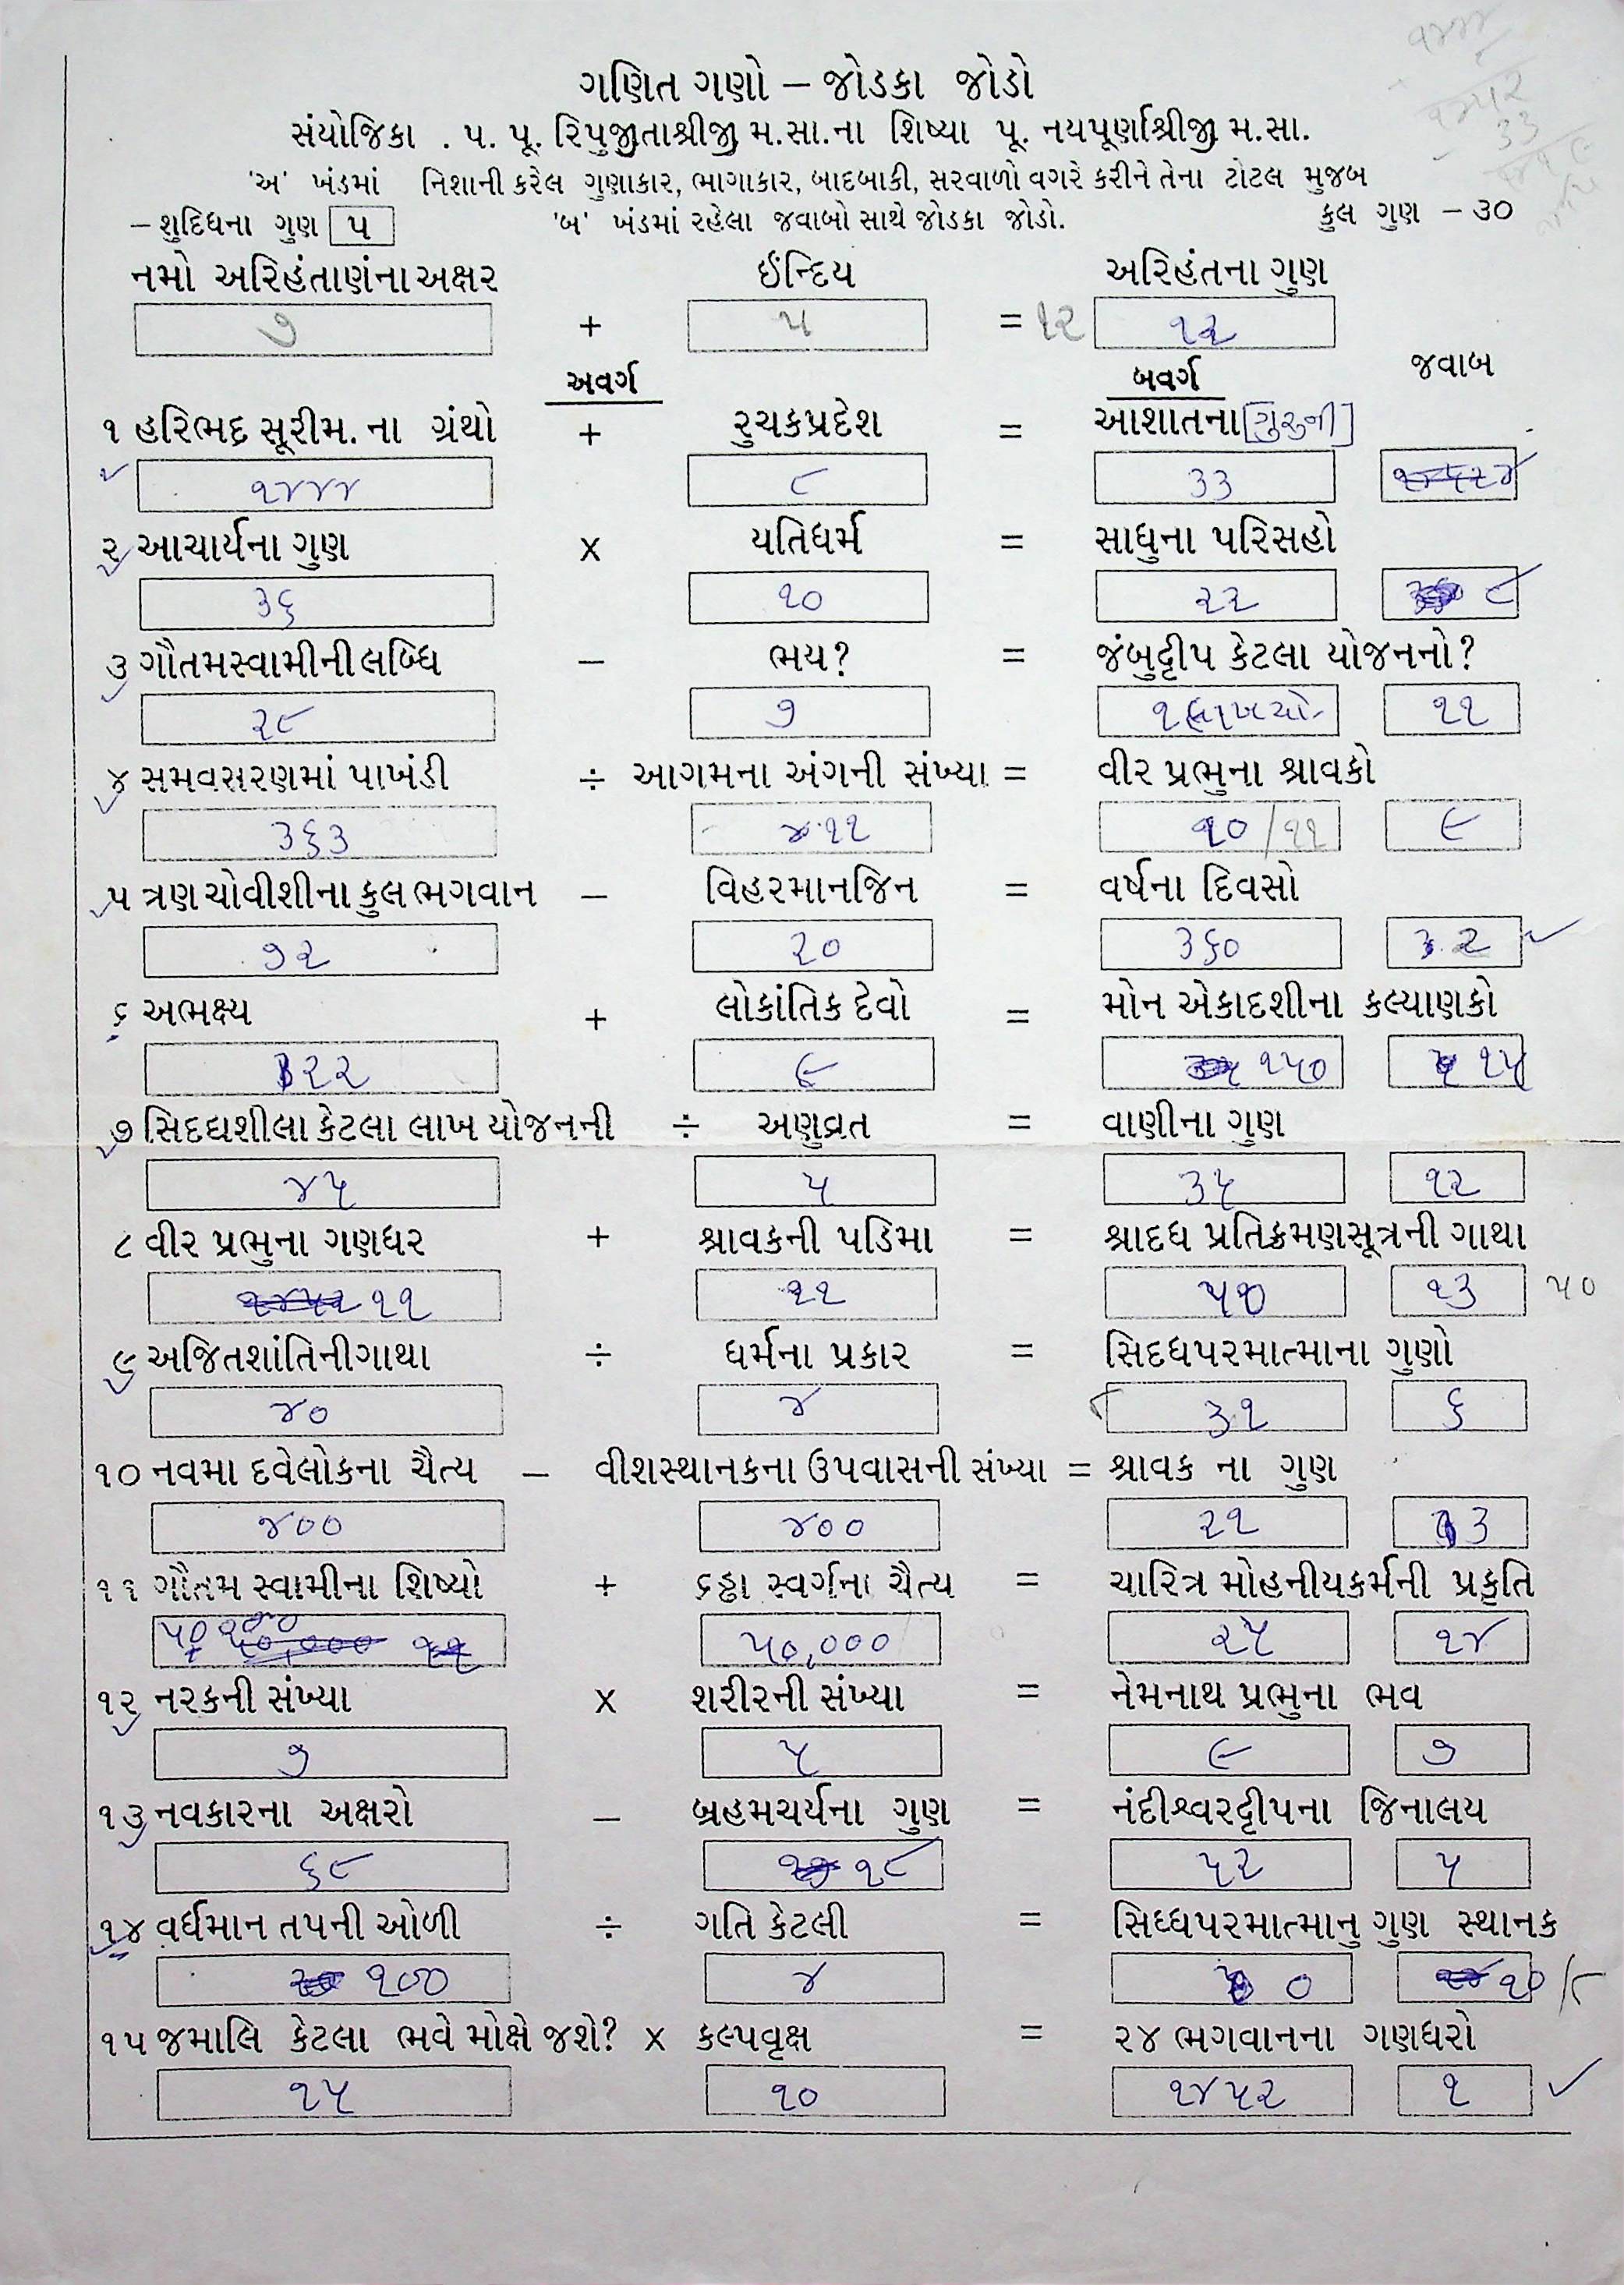 ગણિત ગણો – જોડકા જોડો
સંયોજિકા . પ. પૂ. રિપુજીતાશ્રીજી મ.સા.ના શિષ્યા પૂ. નયપૂર્ણાશ્રીજી મ.સા.
'અ' ખંડમાં નિશાની કરેલ ગુણાકાર, ભાગાકાર, બાદબાકી, સરવાળો વગરે કરીને તેના ટોટલ મુજબ
– શુદિધના ગુણ ૫ 'બ' ખંડમાં રહેલા જવાબો સાથે જોડકા જોડો. કુલ ગુણ – ૩૦
નમો અરિહંતાણંના અક્ષર ઈન્દિય અરિહંતના ગુણ
૭ + ૫ = ૧૨ ૧૨
અવર્ગ બવર્ગ જવાબ
૧ હરિભદ્ર સૂરીમ. ના ગ્રંથો + રુચકપ્રદેશ = આશાતના [ગુરુની]
૧૪૪૪ ૮ ૩૩
૨ આચાર્યના ગુણ x યતિધર્મ = સાધુના પરિસહો
૩૬ ૧૦ ૨૨ ૮
૩ ગૌતમસ્વામીની લબ્ધિ – ભય? = જંબુદ્વીપ કેટલા યોજનનો?
૨૮ ૭ ૧ લાખ યો. ૧૧
૪ સમવસરણમાં પાખંડી ÷ આગમના અંગની સંખ્યા = વીર પ્રભુના શ્રાવકો
૩૬૩ ૧૧ ૧૦/૧૧ ૯
૫ ત્રણ ચોવીશીના કુલ ભગવાન – વિહરમાનજિન = વર્ષના દિવસો
૭૨ ૨૦ ૩૬૦ ૨
૬ અભક્ષ્ય + લોકાંતિક દેવો = મોન એકાદશીના કલ્યાણકો
૨૨ ૯ ૧૫૦ ૧૫
૭ સિદદ્યશીલા કેટલા લાખ યોજનની ÷ અણુવ્રત = વાણીના ગુણ
૪૫ ૫ ૩૫ ૧૨
૮ વીર પ્રભુના ગણધર + શ્રાવકની પડિમા = શ્રાદધ પ્રતિક્રમણસૂત્રની ગાથા
૧૧ ૧૧ ૫૦ ૧૩ ૫૦
૯ અજિતશાંતિનીગાથા ÷ ધર્મના પ્રકાર = સિદધપરમાત્માના ગુણો
૪૦ ૪ ૩૧ ૬
૧૦ નવમા દવેલોકના ચૈત્ય – વીશસ્થાનકના ઉપવાસની સંખ્યા = શ્રાવક ના ગુણ
૪૦૦ ૪૦૦ ૨૧ ૩
૧૧ ગૌતમ સ્વામીના શિષ્યો + ૬ઠ્ઠા સ્વર્ગના ચૈત્ય = ચારિત્ર મોહનીયકર્મની પ્રકૃતિ
૫૦,૦૦૦ ૨૫ ૧૪
૧૨ નરકની સંખ્યા x શરીરની સંખ્યા = નેમનાથ પ્રભુના ભવ
૭ ૫ ૯ ૭
૧૩ નવકારના અક્ષરો – બ્રહમચર્યના ગુણ = નંદીશ્વરદ્વીપના જિનાલય
૬૮ ૧૮ ૫૨ ૫
૧૪ વર્ધમાન તપની ઓળી ÷ ગતિ કેટલી = સિધ્ધપરમાત્માનુ ગુણ સ્થાનક
૧૦૦ ૪ ૦ ૧૦/૮
૧૫ જમાલિ કેટલા ભવે મોક્ષે જશે? x કલ્પવૃક્ષ = ૨૪ ભગવાનના ગણધરો
૧૫ ૧૦ ૧૪૫૨ ૧